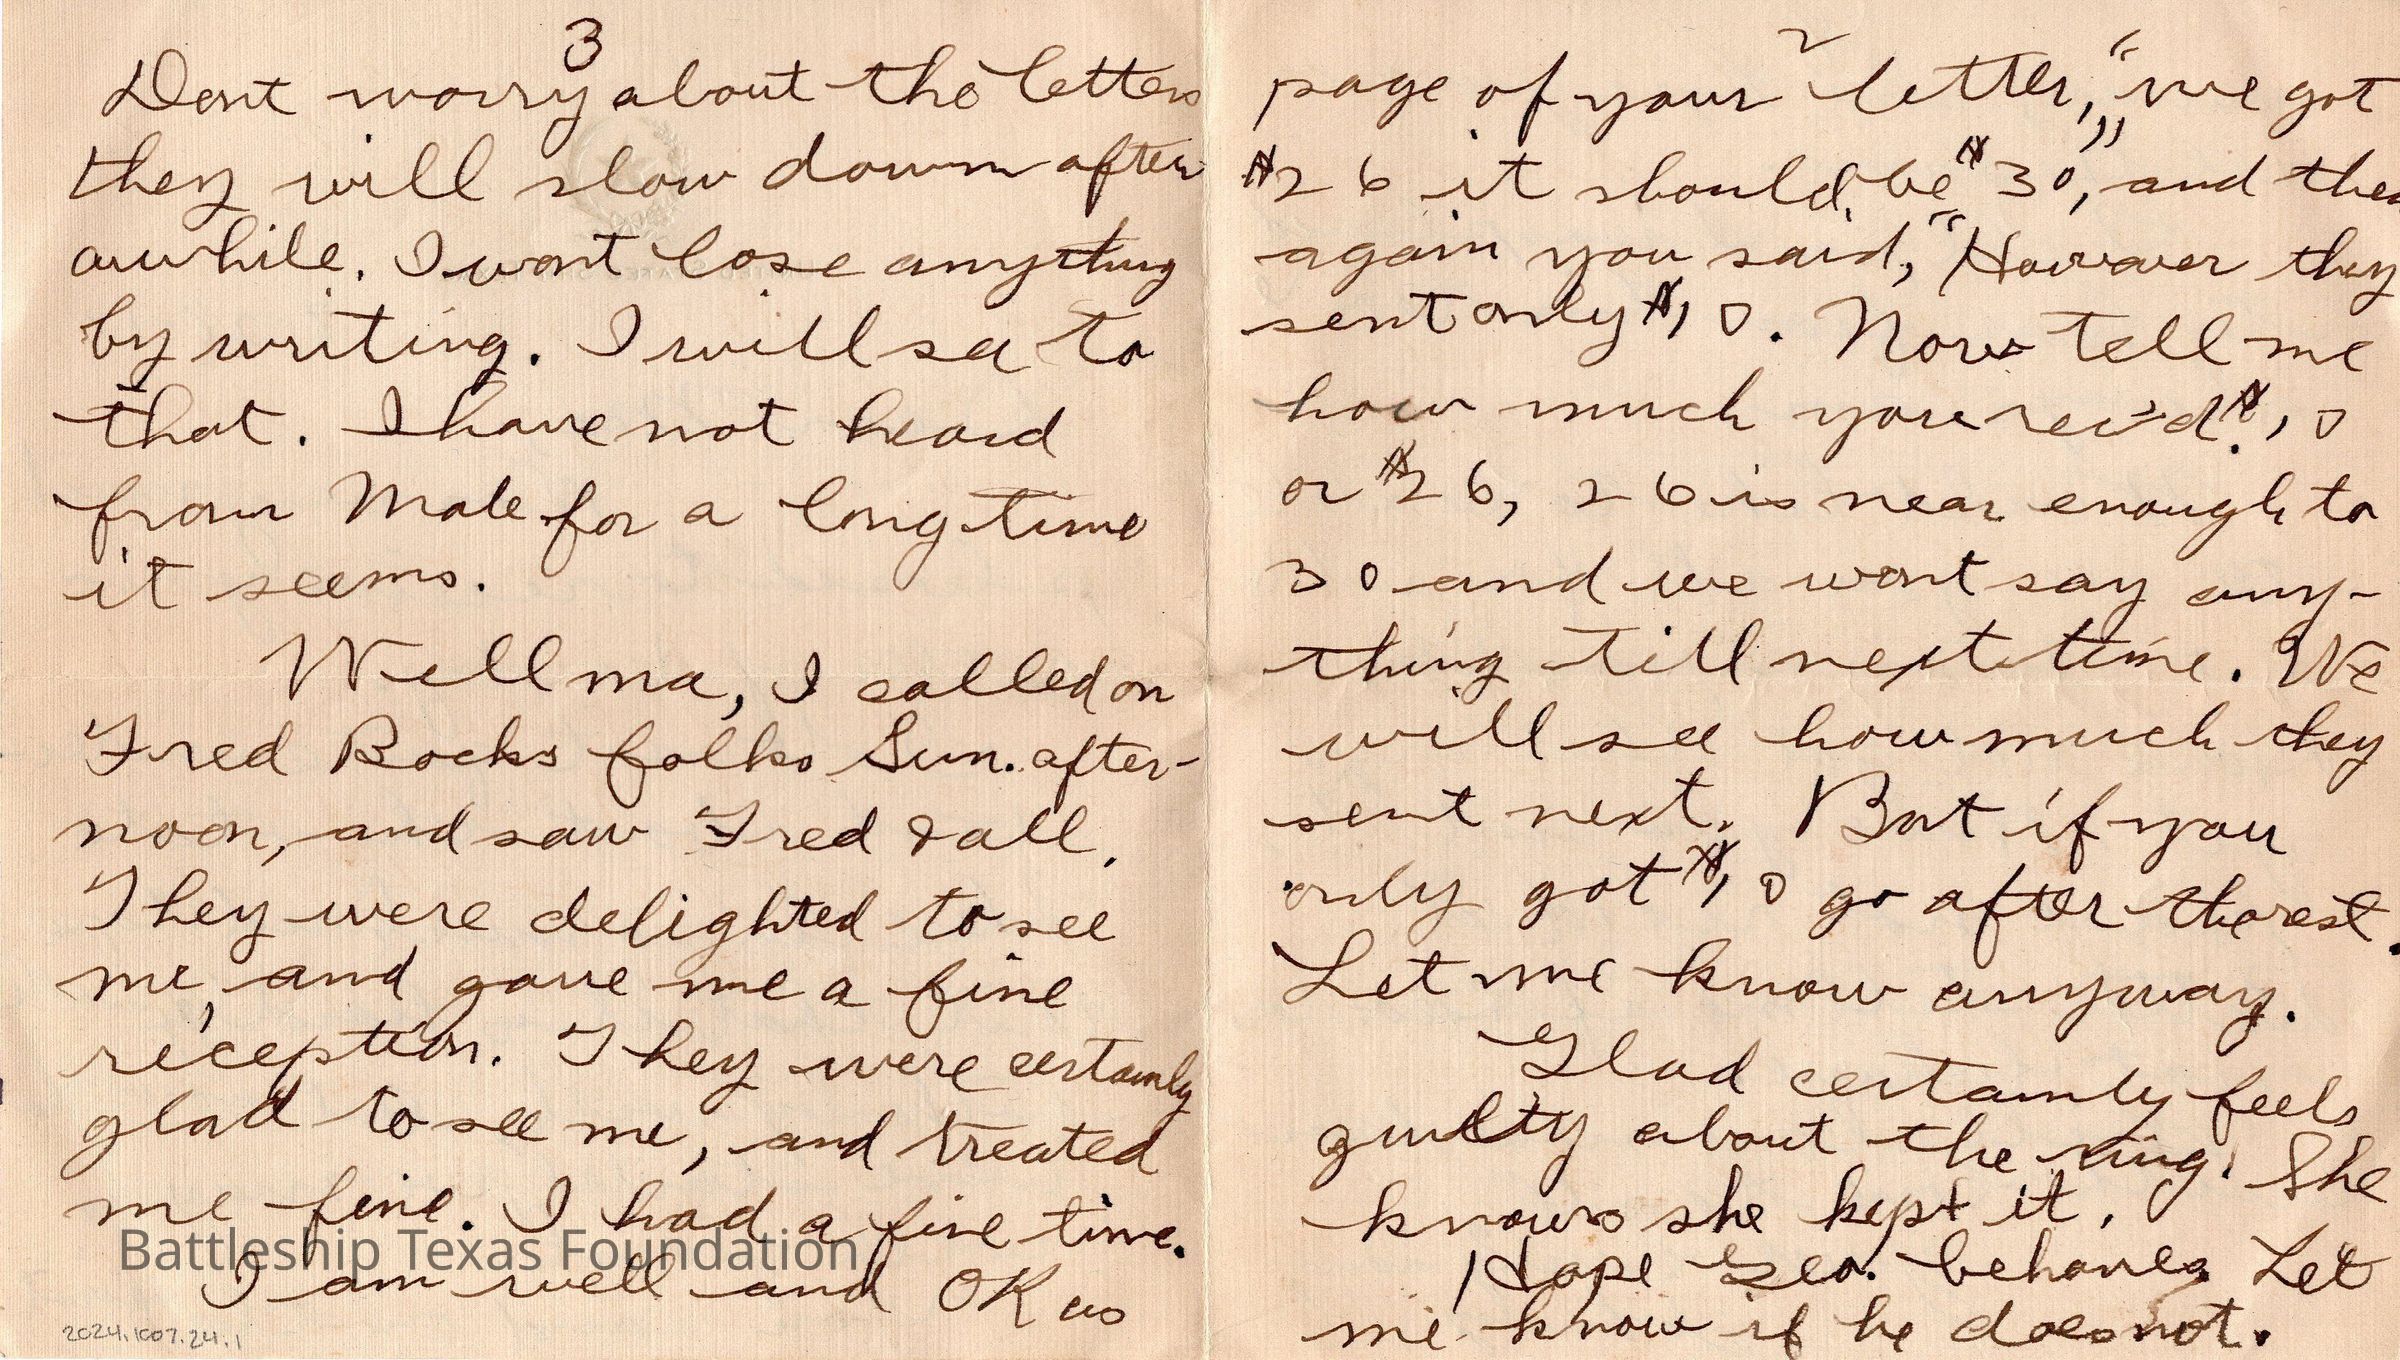 3
Dont worry about the letters
they will slow down after
awhile. I wont lose anything
by writing. I will see to
that. I have not heard
from Mable for a long time
it seems.
Well ma, I called on
Fred Bocks folks Sun. after-
noon, and saw Fred & all.
They were delighted to see
me, and gave me a fine
reception. They were certainly
glad to see me, and treated
me fine. I had a fine time.
I am well and OK as
Battleship Texas Foundation
2024.1007.24.1
2
page of your letter, "we got
$26 it should be $30," and then
again you said, "However they
sent only $10. Now tell me
how much you rec'd. $10
or $26, 26 is near enough to
30 and we wont say any-
thing till next time. We
will see how much they
sent next. But if you
only got $10 go after the rest.
Let me know anyway.
Glad certainly feels
guilty about the ring. She
knows she kept it.
Hope Geo. behaves. Let
me know if he does not.